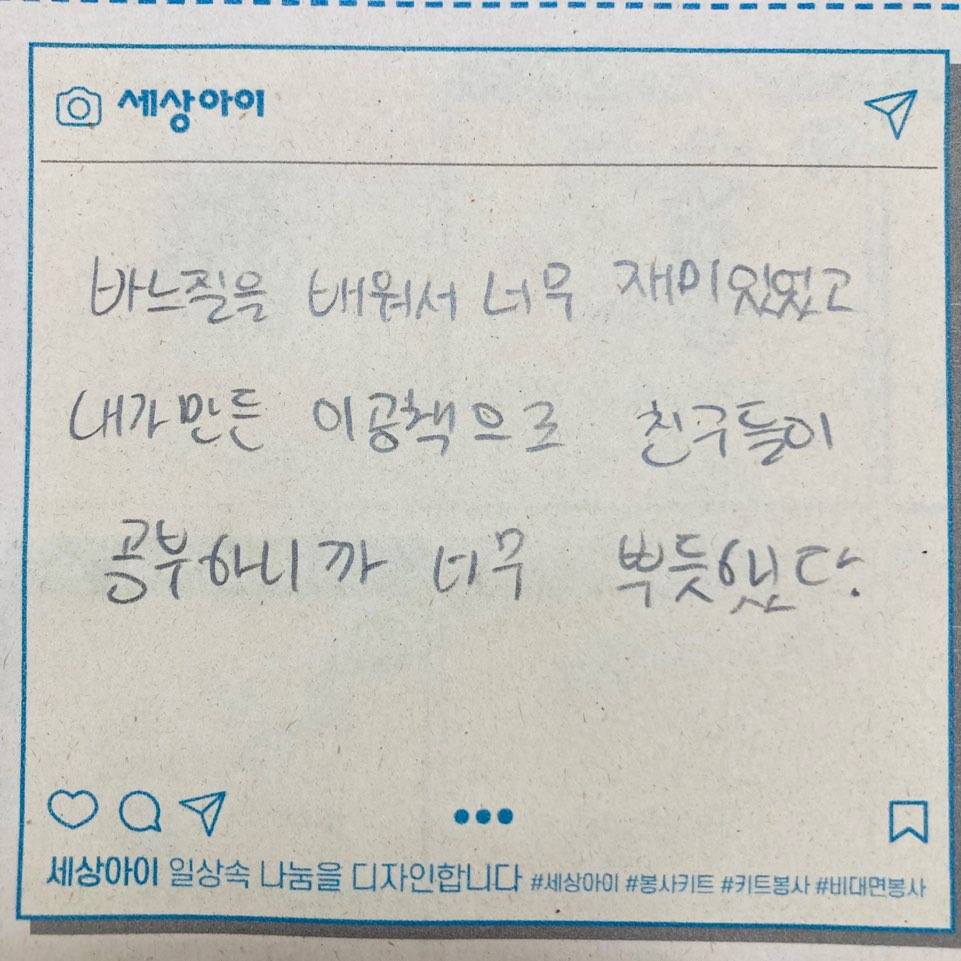 세상아이
바느질을 배워서 너무 재미있었고
내가만든 이공책으로 친구들이
공부하니까 너무 뿌듯했다.
세상아이 일상속 나눔을 디자인합니다 #세상아이 #봉사키트 #키트봉사 #비대면봉사